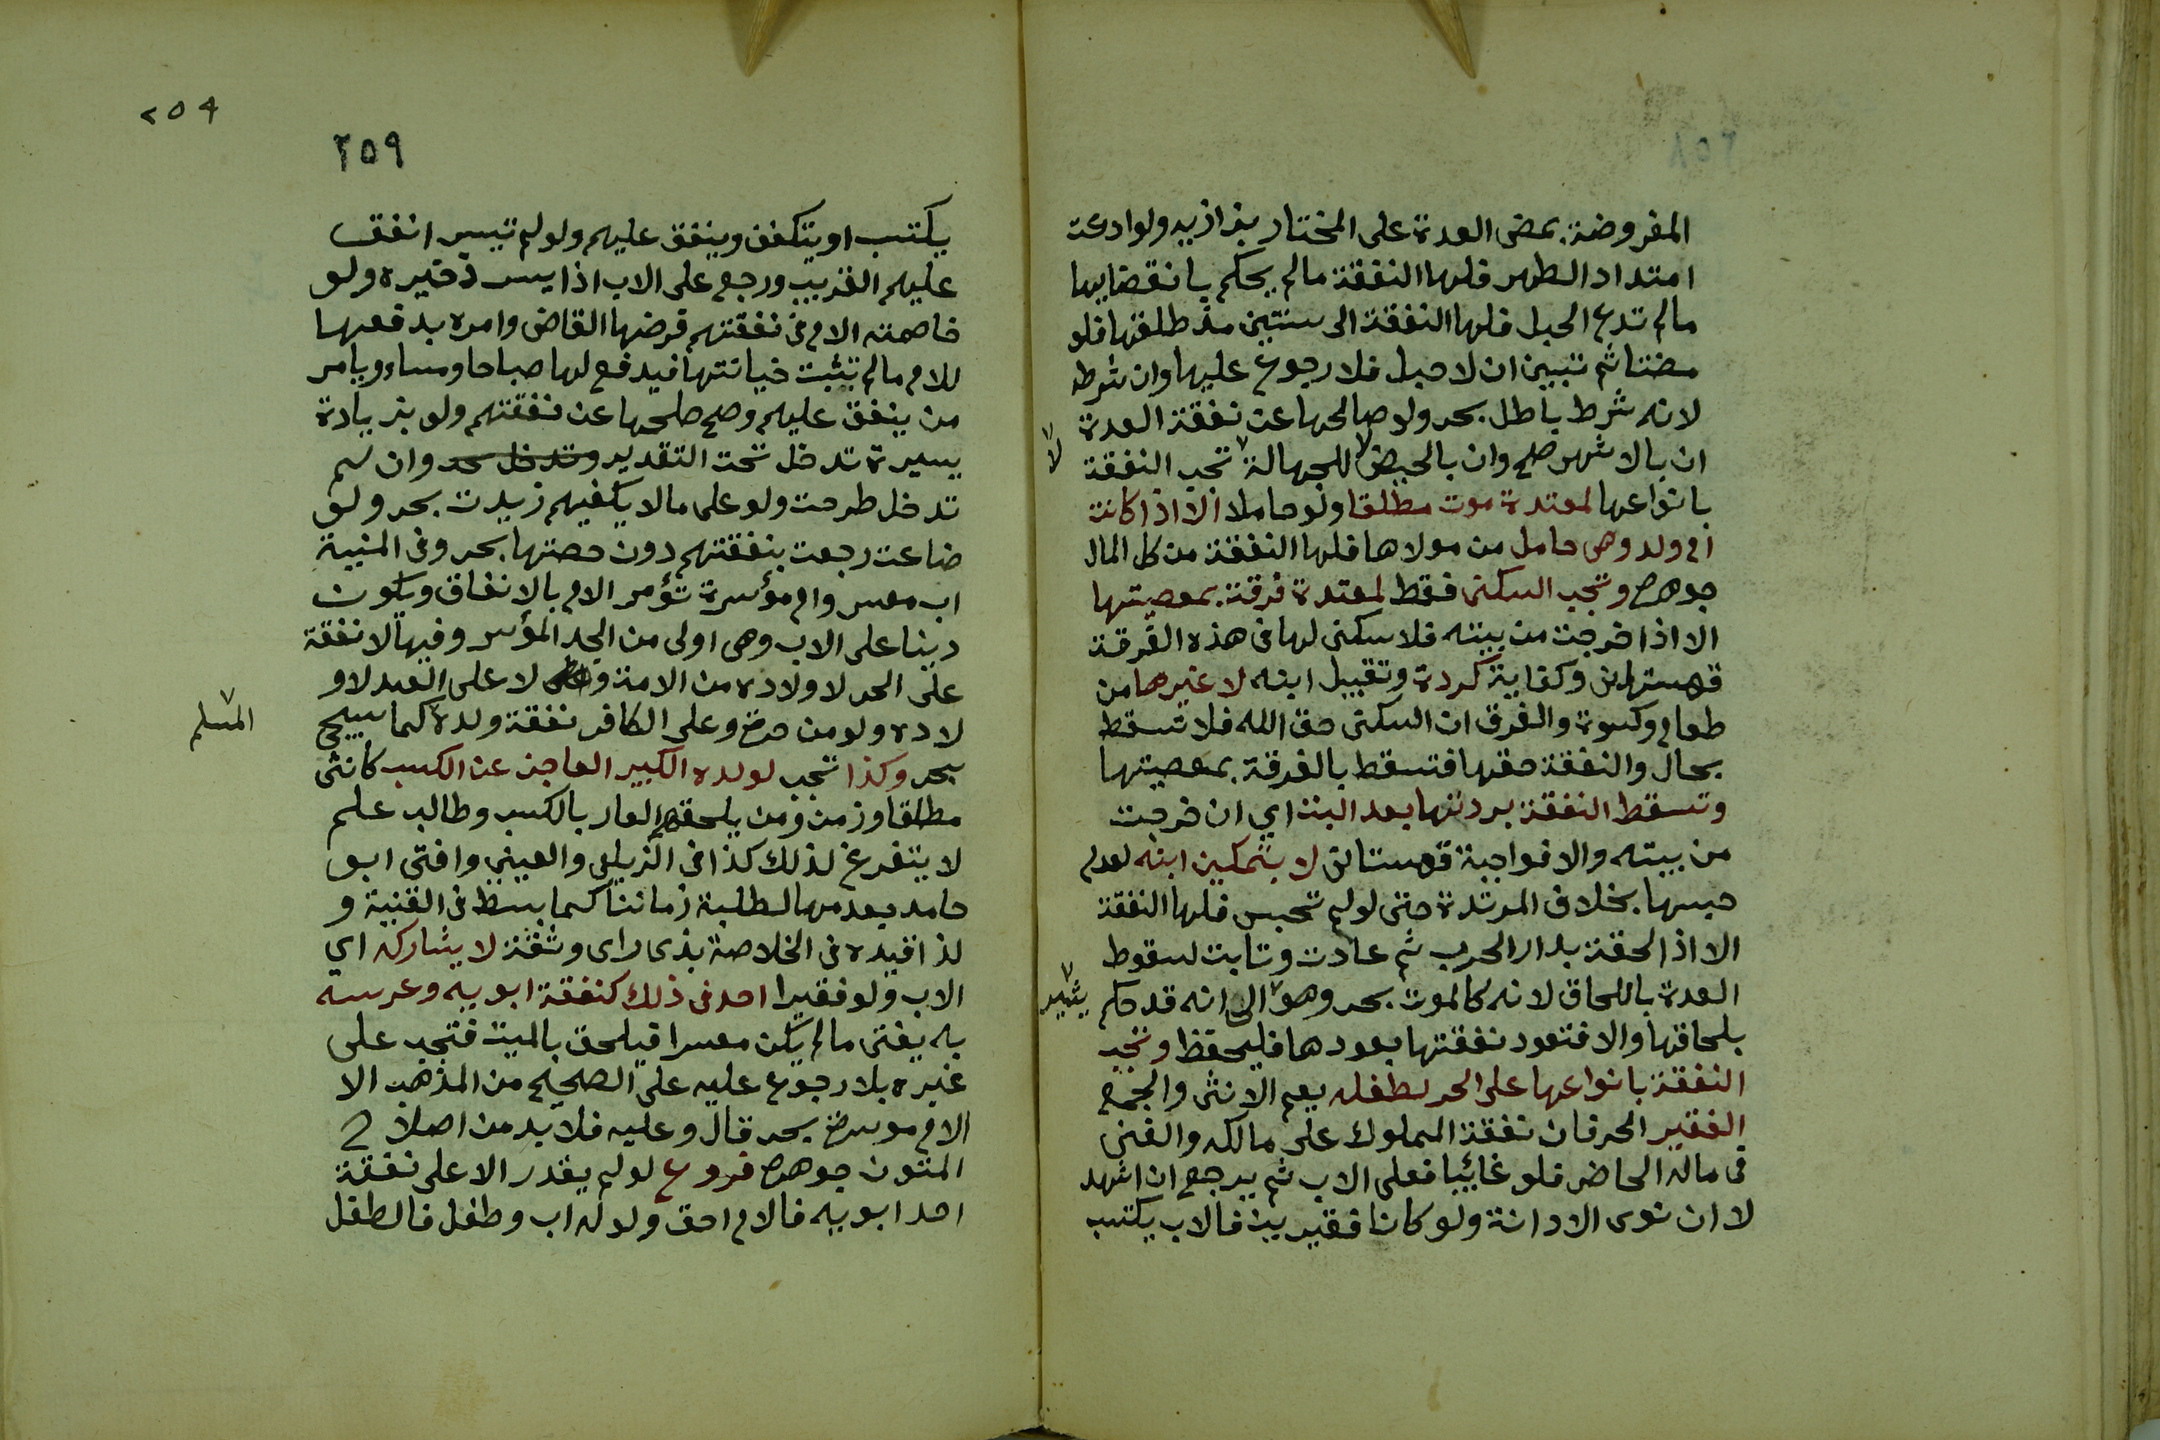 المفروضة بمضى العدة على المختار بزازيه ولو ادعت
امتداد الطهر فلها النفقة مالم يحكم بانقضايها
مالم تدع الحبل فلها النفقة الى سنتين مذ طلقها فلو
مضتا ثم تبين ان لا حبل فلا رجوع عليها وان شرطه
لانه شرط باطل بحر ولو صالحها عن نفقة العدة
ان بالاشهر صح وان بالحيض لا للجهالة تجب النفقة
لا
بانواعها لمعتدة موت مطلقا ولو حاملا الا اذا كانت
ام ولد وهى حامل من مولاها فلها النفقة من كل المال
جوهره وتجب السكنى فقط لمعتدة فرقة بمعصيتها
الا اذا خرجت من بيته فلا سكنى لها فى هذه الفرقة
قهستانى وكفاية كردة وتقبيل ابنه لا غيرها من
طعام وكسوة والفرق ان السكنى حق الله فلا تسقط
بحال والنفقة حقها فتسقط بالفرقة بمعصيتها
وتسقط النفقة بردتها بعد البت اي ان خرجت
من بيته والا فواجبة قهستانى لا بتمكين ابنه لعدم
حبسها بخلاف المرتدة حتى لو لم تحبس فلها النفقة
الا اذا لحقت بدار الحرب ثم عادت وتابت لسقوط
العدة باللحاق لانه كالموت بحر وهو الى انه قد حكم
يشير
بلحاقها والا فتعود نفقتها بعودها فليحفظ وتجب
النفقة بانواعها على الحر لطفله يعم الانثى والجمع
الفقير الحر فان نفقة المملوك على مالكه والغنى
فى ماله الحاضر فلو غائبا فعلى الاب ثم يرجع ان اشهد
لا ان نوى الا دانة ولو كانا فقيرين فالاب يكتسب
٢٥٩
٢٥٩
يكتسب او يتكفف وينفق عليهم ولو لم تيسر انفق
عليهم القريب ورجع على الاب اذا ايسر ذخيره ولو
خاصمته الام فى نفقتهم فرضها القاضى وامره بدفعها
للام مالم تثبت خيانتها فيدفع لها صباحا ومساء ويامر
من ينفق عليهم وصح صلحها عن نفقتهم ولو بزيادة
يسيرة تدخل تحت التقدير وان لم
تدخل طرحت ولو على مالا يكفيهم زيدت بحر ولو
ضاعت رجعت بنفقتهم دون حصتها بحر وفى المنية
اب معسر وام مؤسرة تؤمر الام بالانفاق ويكون
دينا على الاب وهى اولى من الجد المؤسر وفيها لا نفقة
على الحر لاولاده من الامة و لا على العبد لاو
لاده ولو من حره وعلى الكافر نفقة ولده كما سيجى
المسلم
بحر وكذا تجب لولده الكبير العاجز عن الكسب كانثى
مطلقا وزمن ومن يلحقه العار بالكسب وطالب علم
لا يتفرغ لذلك كذا فى الزيلعى والعينى وافتى ابو
حامد بعدمها لطلبة زماننا كما بسط فى القنية و
لذا قيده فى الخلاصة بذى راى وثقة لا يشاركه اي
الاب ولو فقيرا احد فى ذلك كنفقة ابويه وعرسه
به يفتى مالم يكن معسرا فيلحق بالميت فتجب على
غيره بلا رجوع عليه على الصحيح من المذهب الا
الام موسره بحر قال وعليه فلا بد من اصلاح
المتون جوهره فروع لو لم يقدر الا على نفقة
احد ابويه فالام احق ولو له اب وطفل فالطفل